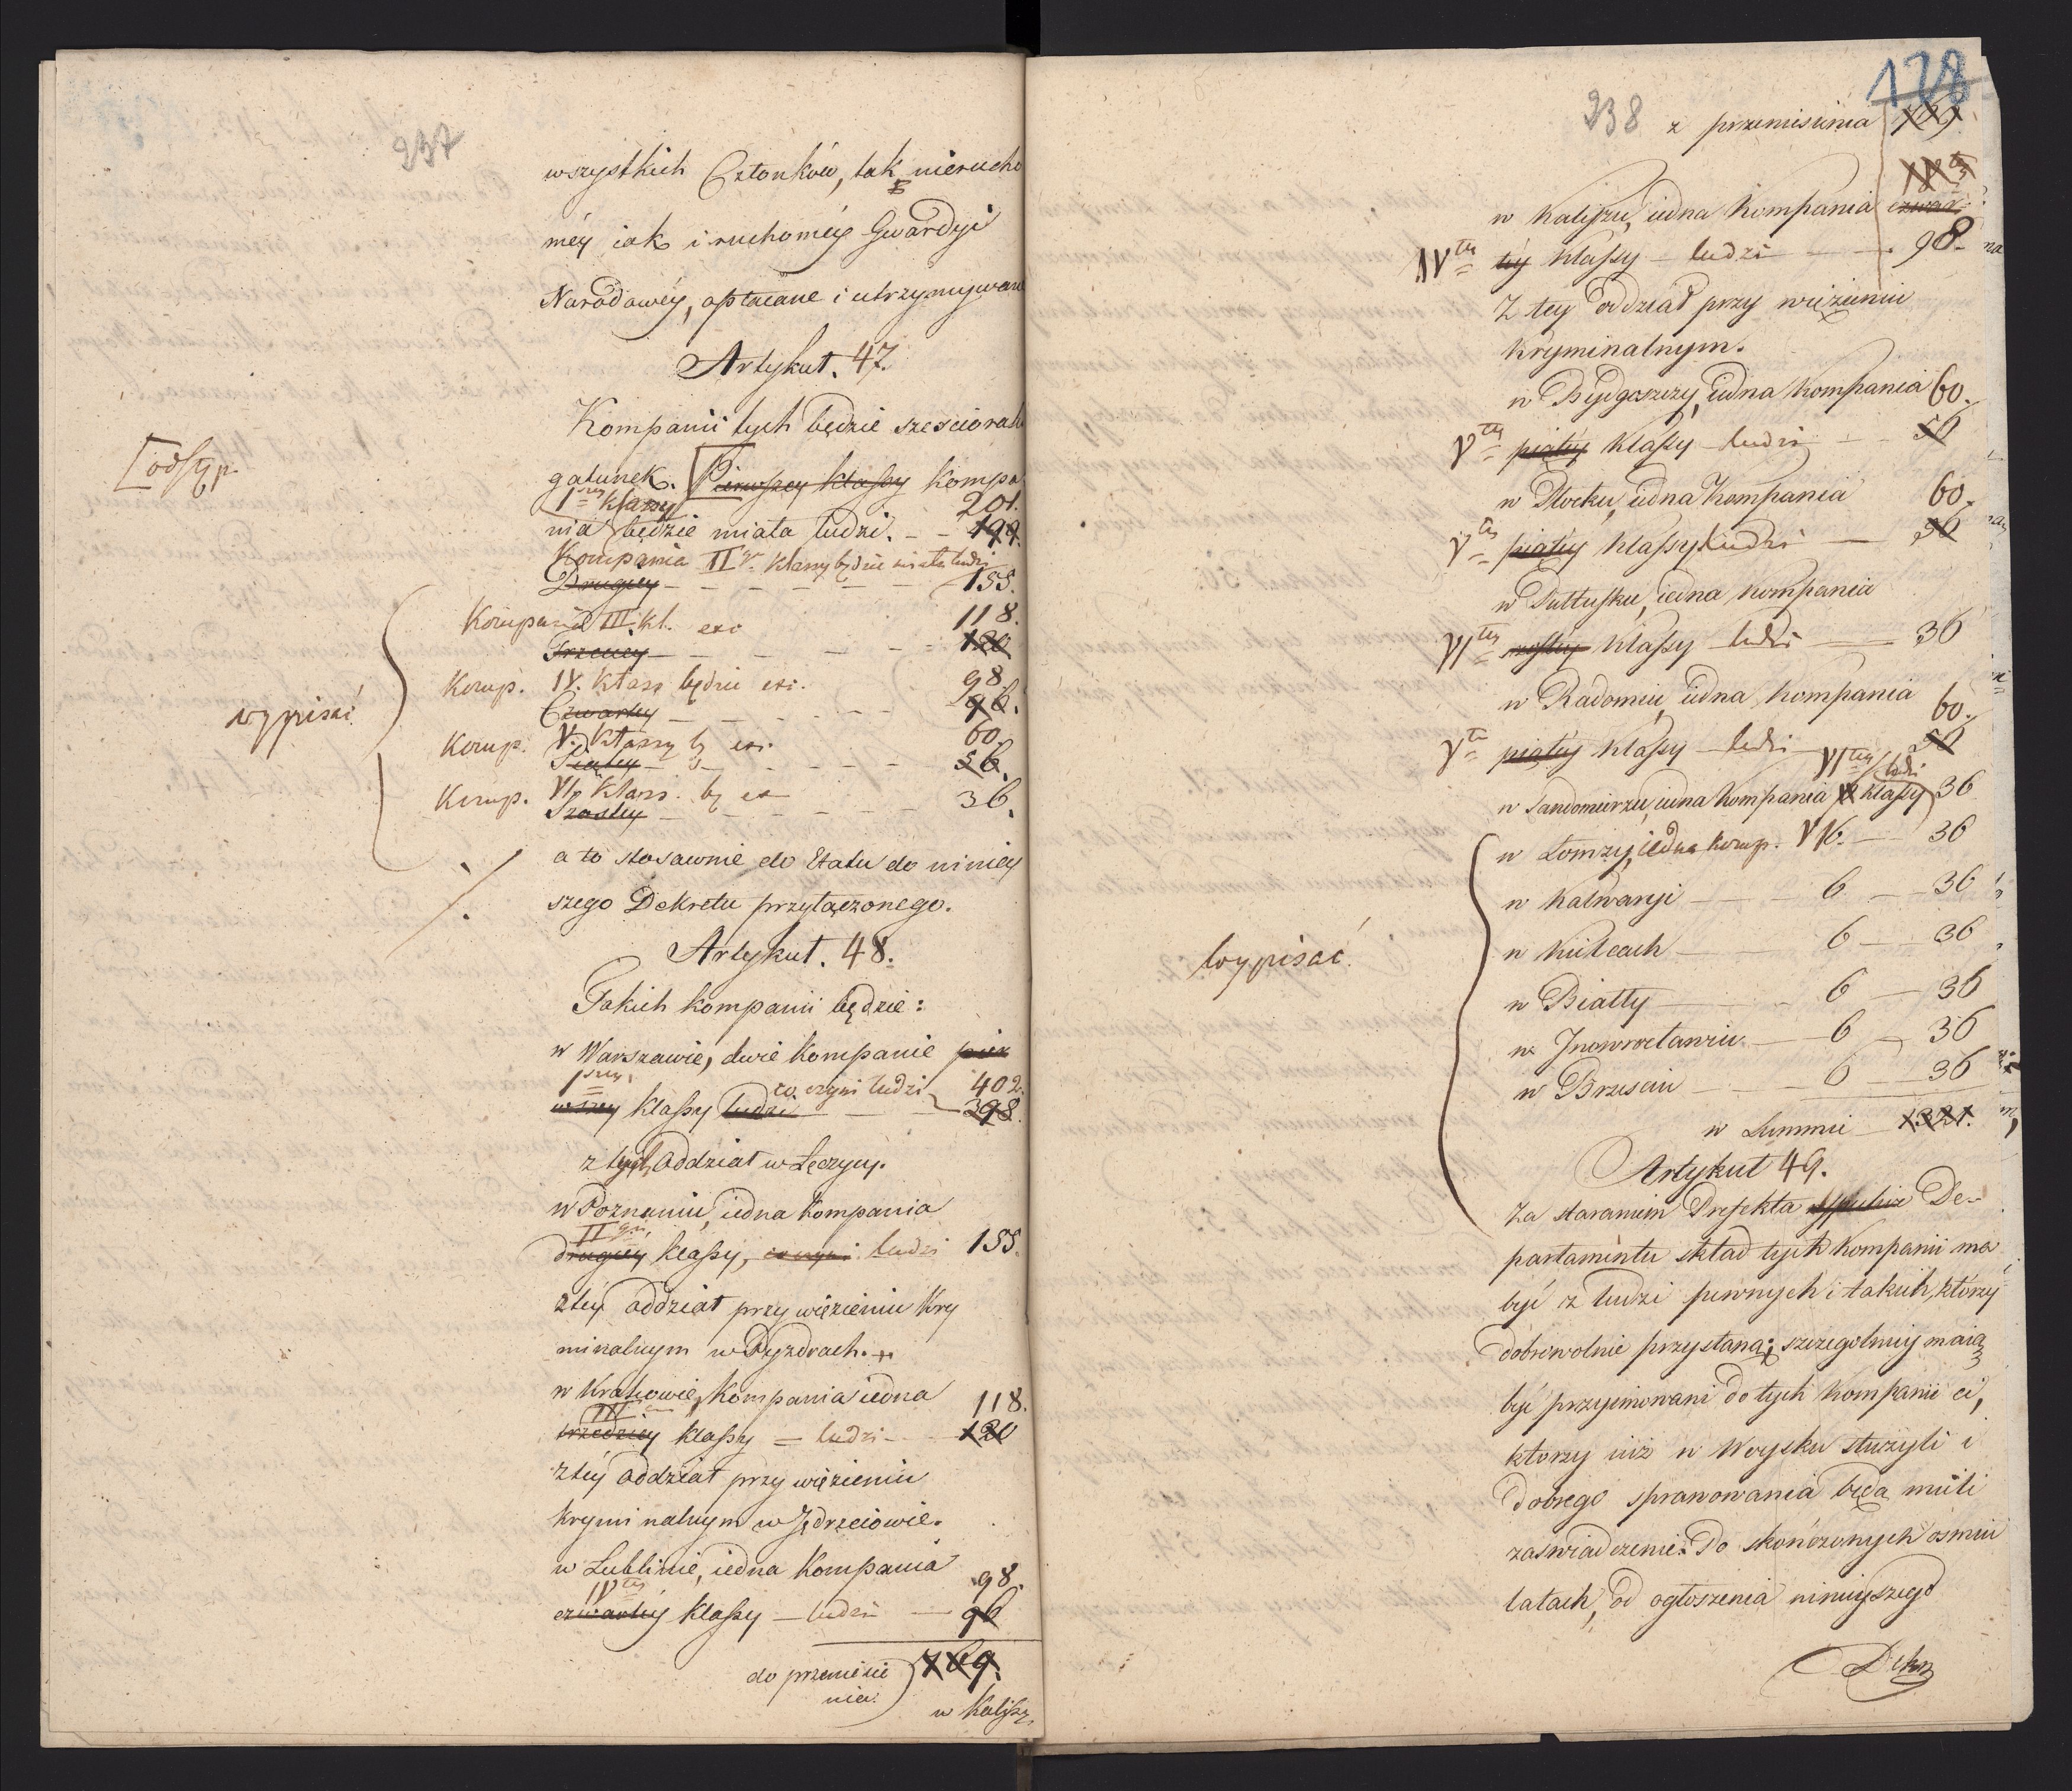 237
wszystkich Członków, tak nierucho
méy iak i ruchoméy Gwardyi
Narodowéy, opłacane i utrzymywane
Artykuł. 47.
Kompanii tych będzie sześcioraki
[odstęp.
gatunek. [Pierwszey klassy kompa
1szey klassy 201.
nia będzie miała ludzi. - - 199.
Kompania II gr. klassy będzie miała ludzi
Drugiey - - - - - 155.
Kompania III. kl. etc 118.
Trzeciey - - - - - 120
Komp. IV. klass. będzie etc. 98
Czwartey - - - - - 96.
wypisać
Komp. V. klassy b etc. 60.
Piątey - - - - - 56.
Komp. VI. klass. bę etc
Szostey - - - - - 36.
a to stosownie do Etatu do niniey
szego Dekretu przyłączonego.
Artykuł. 48.
Takich kompanii będzie:
w Warszawie, dwie kompanie pier
1szey co czyni ludzi 402.
wszey klassy ludzi 398.
z tych oddział w Łęczycy.
w Poznaniu, iedna kompania
II giéy
drugiéy klassy, co czyni ludzi 155.
z téy oddział przy więzieniu Kry
minalnym w Pyzdrach.
w Krakowie, kompania iedna 118.
III
trzeciéy klassy = ludzi - 120
z téy oddział przy więzieniu
kryminalnym w Jędrzeiowie.
w Lublinie, iedna kompania 98.
IVtéy
czwartéy klassy - ludzi - 96
do przeniesie
nia. 769.
w Kalisz
128
238 z przeniesienia 769
IVtéy
w Kaliszu, iedna kompania czwar
IVtéy téy klassy - ludzi - 98.
Z tey oddział przy więzieniu
kryminalnym.
w Bydgoszczy, iedna kompania 60.
Vtéy piątéy klassy - ludzi - 56
w Płocku, iedna kompania 60.
Vtéy piątéy klassy ludzi - 56
w Pułtusku, iedna kompania
VItéy szostéy klassy - ludzi - 36
w Radomiu, iedna kompania 60.
Vtéy piątéy klassy - ludzi - 56
VItéy ludzi
w Sandomierzu, iedna kompania klassy 36
w Łomży, iedna komp. VI. - 36
w Kalwaryi - 6 - 36
w Kielcach - 6 - 36
wypisać.
w Białły - 6 - 36
w Inowrocławiu - 6 - 36
w Brześciu - 6 - 36
w Summie - 1321.
Artykuł 49.
Za staraniem Prefekta De-
partamentu skład tych kompanii ma
być z ludzi pewnych i takich, którzy
dobrowolnie przystaną; szczegolniey maią
być przyimowani do tych kompanii ci,
ktorzy iuż w Woysku służyli i
dobrego sprawowania będą mieli
zaświadczenie. Po skończonych osmiu
latach, od ogłoszenia ninieyszego
Dekre